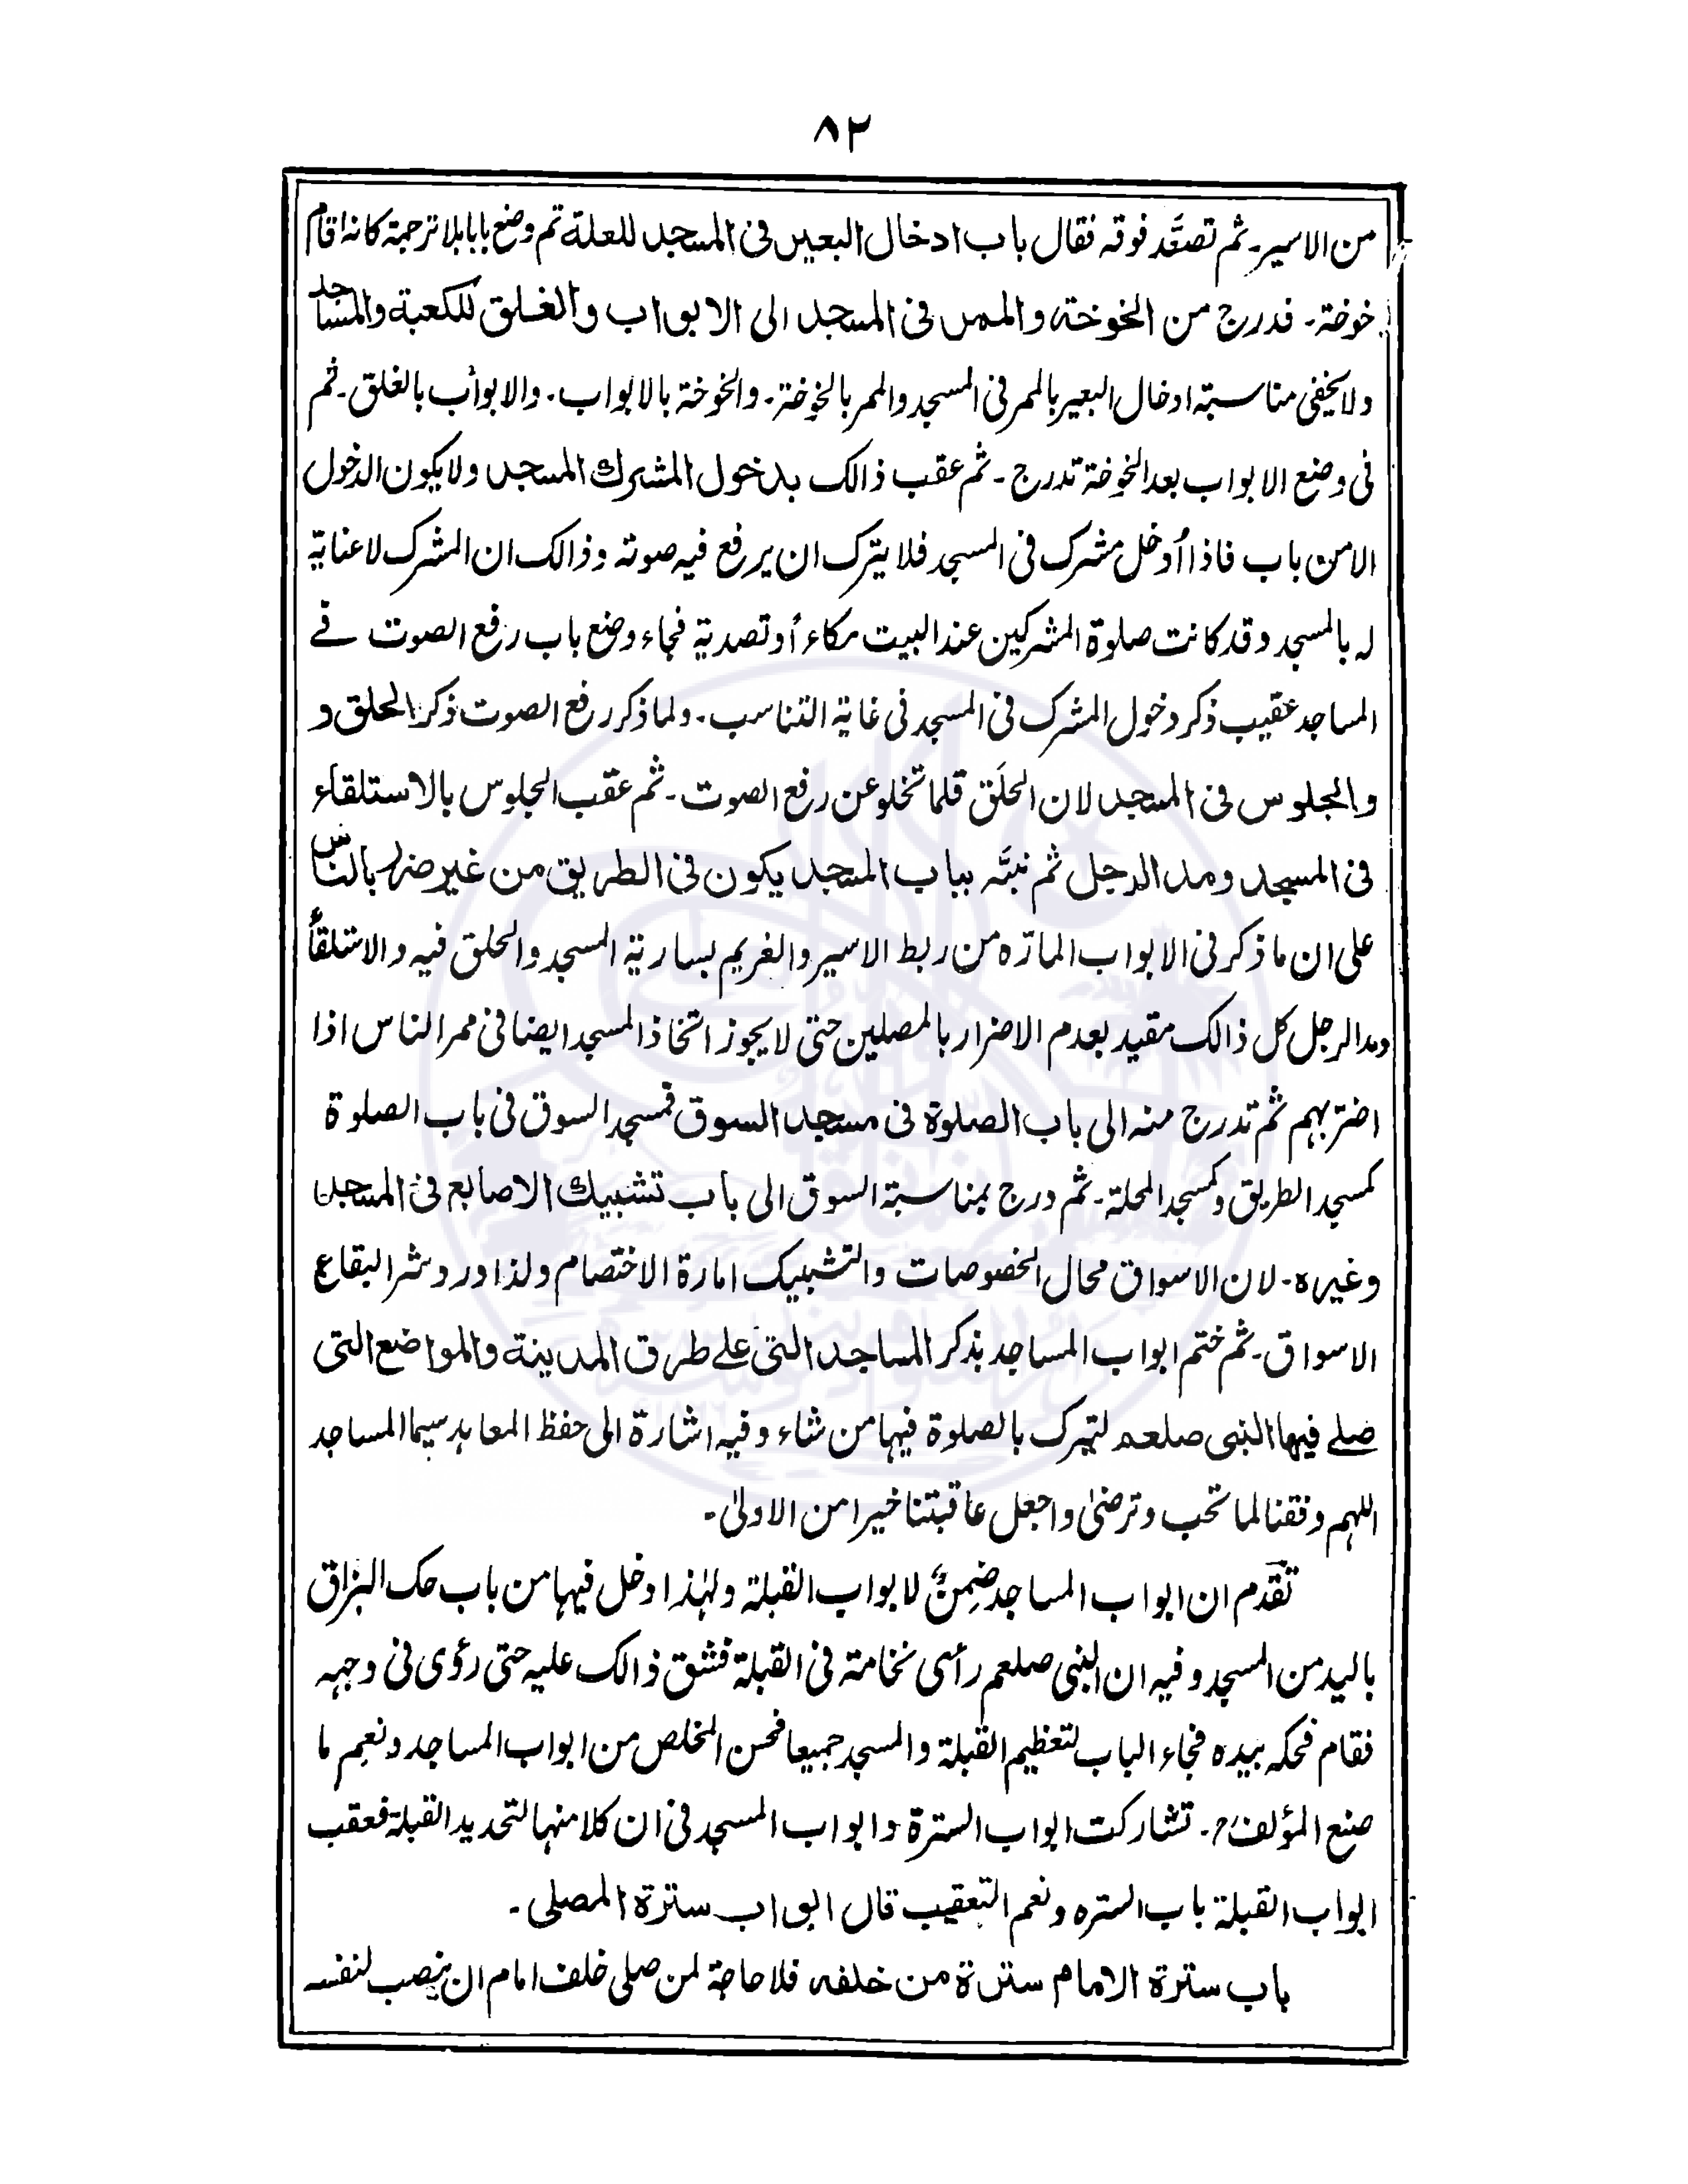 ٨٢
من الاسير۔ ثم تصعَّد فوقه فقال باب ادخال البعير فى المسجد للعلة ثم وضع بابا بلا ترجمة كانه اقام
خوخة۔ فدرج من الخوخة والممر فى المسجد الى الابواب والغلق للكعبة والمساجد
ولا يخفى مناسبة ادخال البعير بالممر فى المسجد والممر بالخوخة۔ والخوخة بالابواب۔ والابواب بالغلق۔ ثم
فى وضع الابواب بعد الخوخة تدرج۔ ثم عقب ذالك بدخول المشرك المسجد ولا يكون الدخول
الا من باب فاذا أدخل مشرك فى المسجد فلا يترك ان يرفع فيه صوته وذالك ان المشرك لا عناية
له بالمسجد وقد كانت صلوة المشركين عند البيت مكاء أو تصدية فجاء وضع باب رفع الصوت فے
المساجد عقيب ذكر دخول المشرك فى المسجد فى غاية التناسب۔ ولما ذكر رفع الصوت ذكر الحلق و
والجلوس فى المسجد لان الحلَق قلما تخلو عن رفع الصوت۔ ثم عقب الجلوس بالاستلقاء
فى المسجد ومد الرجل ثم نبَّه بباب المسجد يكون فى الطريق من غير ضرر بالناس
على ان ما ذكر فى الابواب المارّه من ربط الاسير والغريم بسارية المسجد والحلق فيه والاستلقأ
ومد الرجل كل ذالك مقيد بعدم الاضرار بالمصلين حتى لا يجوز اتخاذ المسجد ايضا فى ممر الناس اذا
اضرّ بهم ثم تدرج منه الى باب الصلوة فى مسجد السوق فمسجد السوق فى باب الصلوة
كمسجد الطريق وكمسجد المحلة۔ ثم درج بمناسبة السوق الى باب تشبيك الاصابع فى المسجد
وغيره۔ لان الاسواق محال الخصومات والتشبيك امارة الاختصام ولذا ورد شر البقاع
الاسواق۔ ثم ختم ابواب المساجد بذكر المساجد التى علے طرق المدينة والمواضع التى
صلے فيها النبى صلعم لتبرك بالصلوة فيها من شاء وفيه اشارة الى حفظ المعابد سيما المساجد
اللهم وفقنا لما تحب وترضىٰ واجعل عاقبتنا خيرا من الاولىٰ۔
تقدم ان ابواب المساجد ضِمنٌ لابواب القبلة ولهٰذا دخل فيها من باب حك البزاق
باليد من المسجد وفيه ان النبى صلعم رأى نخامة فى القبلة فشق ذالك عليه حتى رؤى فى وجهه
فقام فحكه بيده فجاء الباب لتعظيم القبلة والمسجد جميعا فحسن المخلص من ابواب المساجد ونعم ما
صنع المؤلفؒ۔ تشاركت ابواب السترة وابواب المسجد فى ان كلا منها لتحديد القبلة فعقب
ابواب القبلة باب الستره ونعم التعقيب قال ابواب سترة المصلى۔
باب سترة الامام سترة من خلفه فلا حاجة لمن صلى خلف امام ان ينصب لنفسه